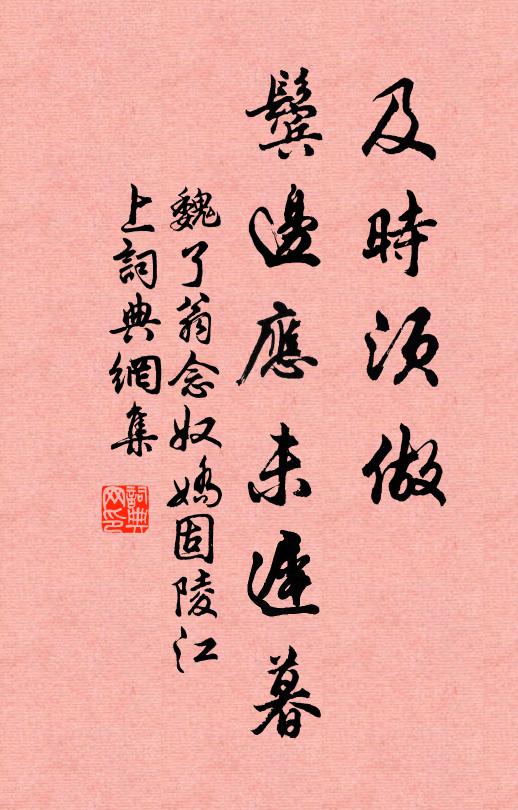 及時須做
鬢邊應未遲暮
魏了翁念奴嬌固陵江
上詞典網集
詞典
网印